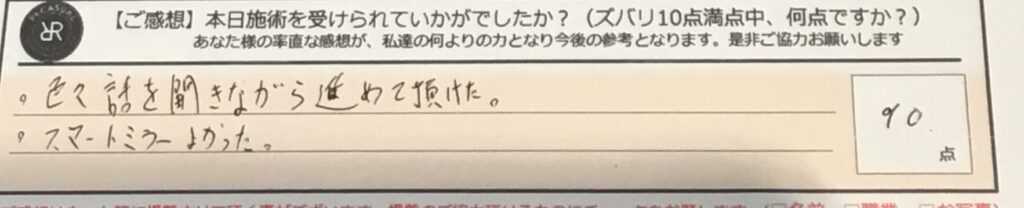 【ご感想】本日施術を受けられていかがでしたか？（ズバリ10点満点中、何点ですか？）
あなた様の率直な感想が、私達の何よりの力となり今後の参考となります。是非ご協力お願いします
。色々話を聞きながら進めて頂けた。
。スマートミラーよかった。
90
点